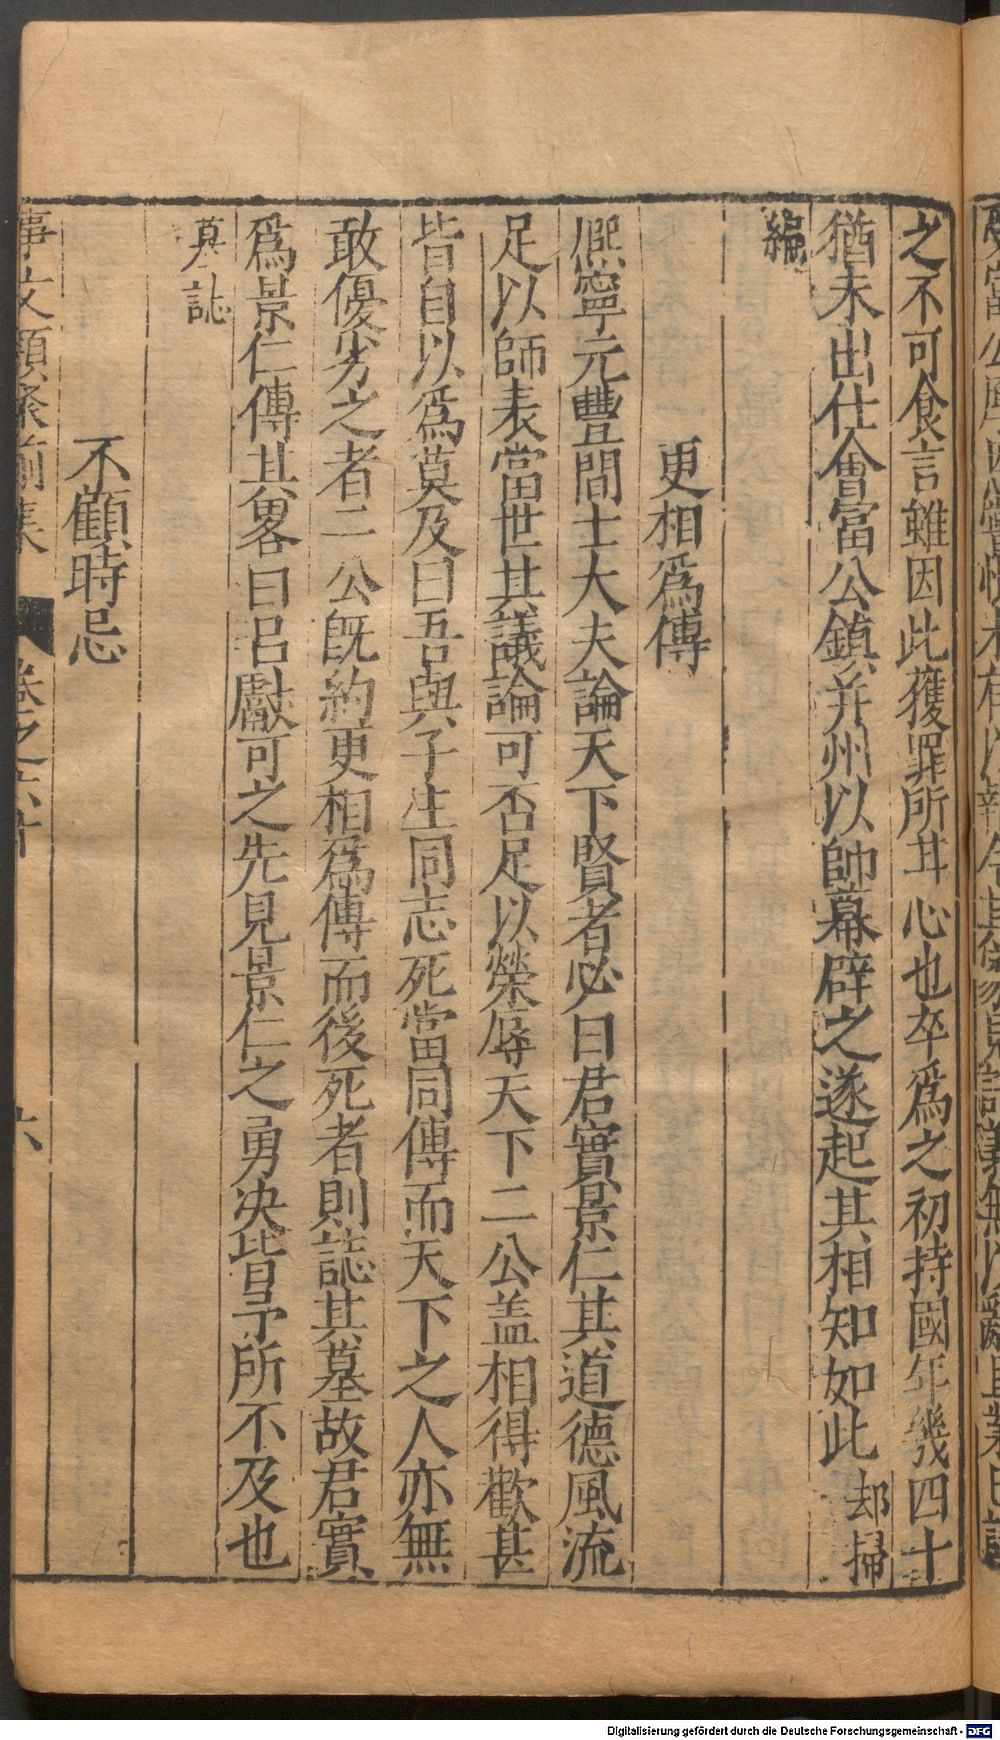 之不可食言雖因此獲罪所甘心也卒爲之初持國年幾四十
猶未出仕會富公鎮并州以帥幕辟之遂起其相知如此 却掃
編
更相爲傳
熈寧元豐間士大夫論天下賢者必曰君實景仁其道德風流
足以師表當世其議論可否足以榮辱天下二公盖相得歡甚
皆自以爲莫及曰吾與子生同志死當同傳而天下之人亦無
敢優劣之者二公旣約更相爲傳而後死者則誌其墓故君實
爲景仁傳其畧曰呂獻可之先見景仁之勇决皆予所不及也
墓誌
不顧時忌
事文類聚前集 卷之六十 六
Digitalisierung gefördert durch die Deutsche Forschungsgemeinschaft - DFG